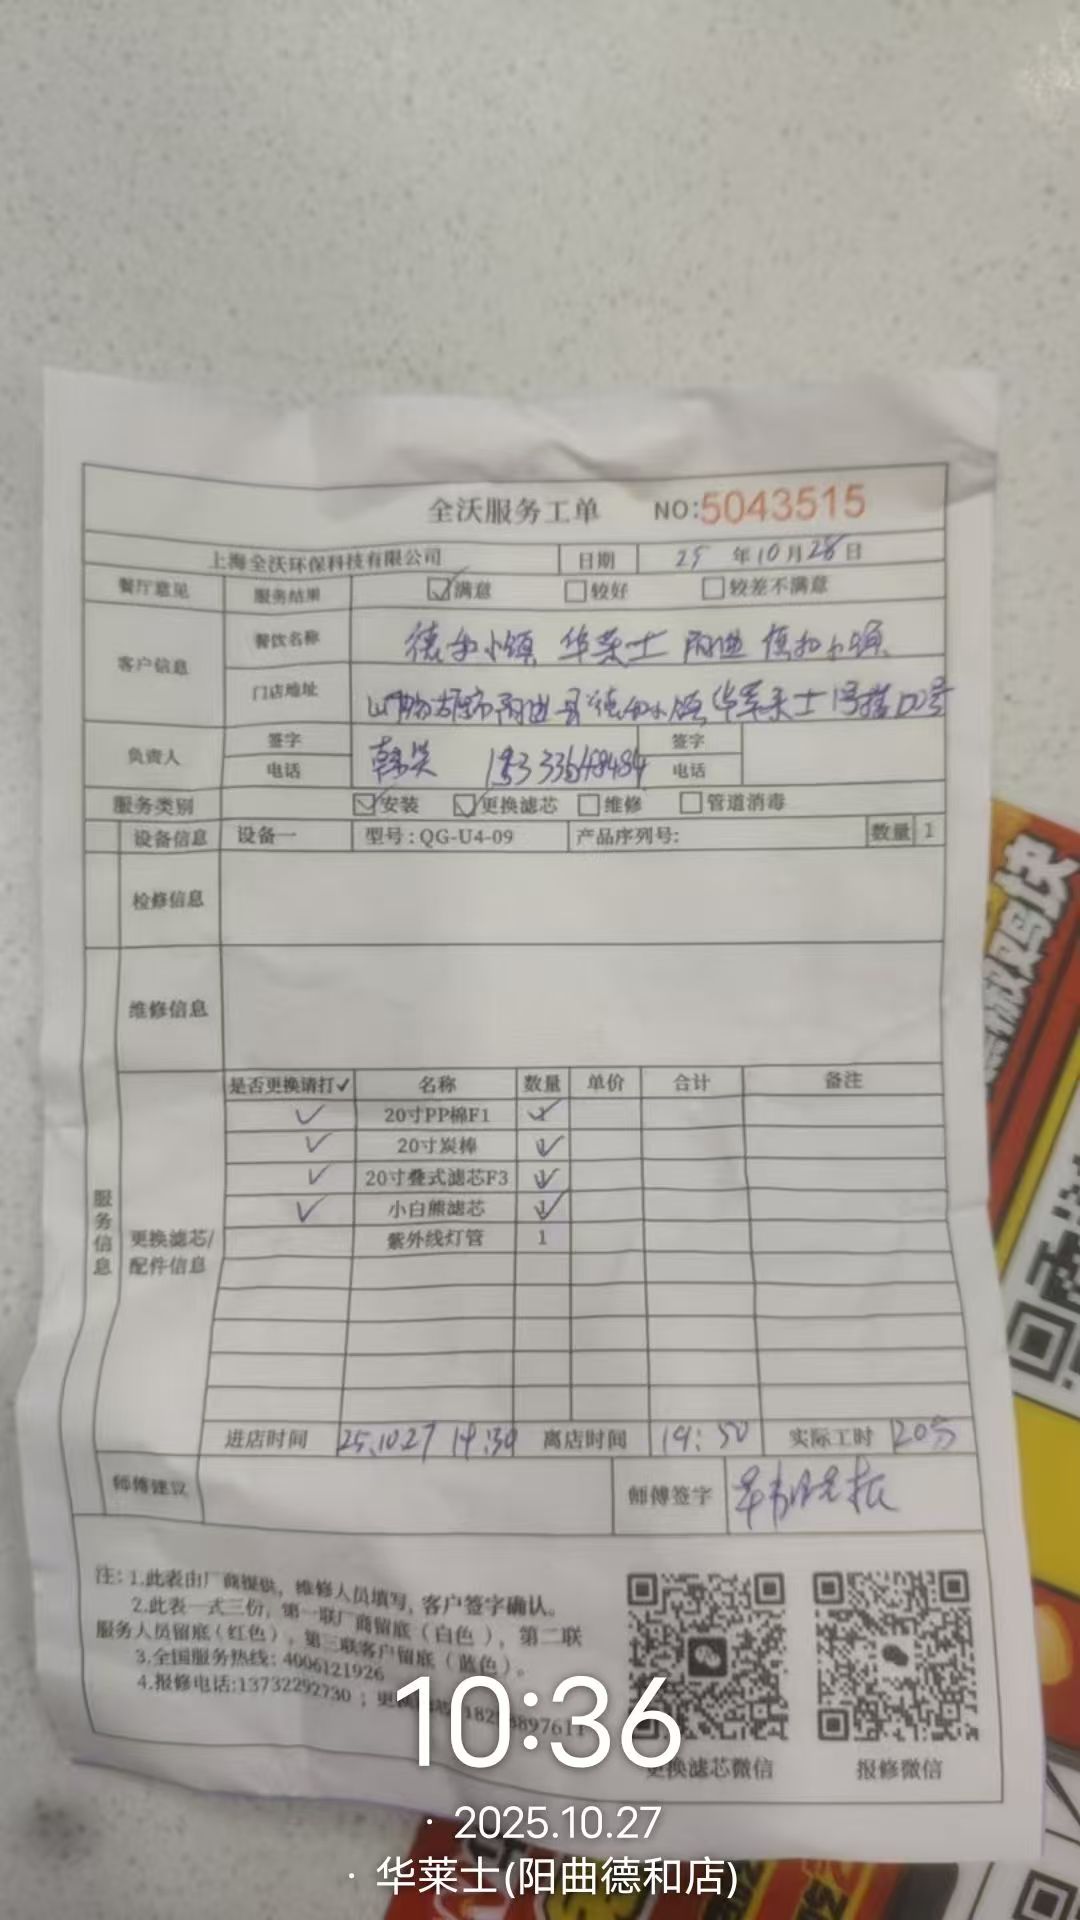 全沃服务工单 NO:5043515
上海全沃环保科技有限公司 日期 25 年10月28日
餐厅意见 服务结果 满意 较好 较差不满意
客户信息 餐饮名称 德和小镇 华莱士 阳曲 德和小镇
门店地址 阳曲县 德和小镇 华莱士 1号楼
负责人 签字 签字
电话 电话
服务类别 安装 更换滤芯 维修 管道消毒
设备信息 设备一 型号:QG-U4-09 产品序列号: 数量 1
检修信息
维修信息
服务信息
更换滤芯/
配件信息
是否更换请打✓ 名称 数量 单价 合计 备注
✓ 20寸PP棉F1 1
✓ 20寸炭棒 1
✓ 20寸叠式滤芯F3 1
✓ 小白熊滤芯 1
紫外线灯管 1
进店时间 25.10.27 14:30 离店时间 14:50 实际工时 20分
师傅建议 师傅签字
注:1.此表由厂商提供,维修人员填写,客户签字确认。
2.此表一式三份,第一联厂商留底(白色),第二联
服务人员留底(红色),第三联客户留底(蓝色)。
3.全国服务热线:4006121926
4.报修电话:13732292730;更换
更换滤芯微信 报修微信
10:36
· 2025.10.27
· 华莱士(阳曲德和店)